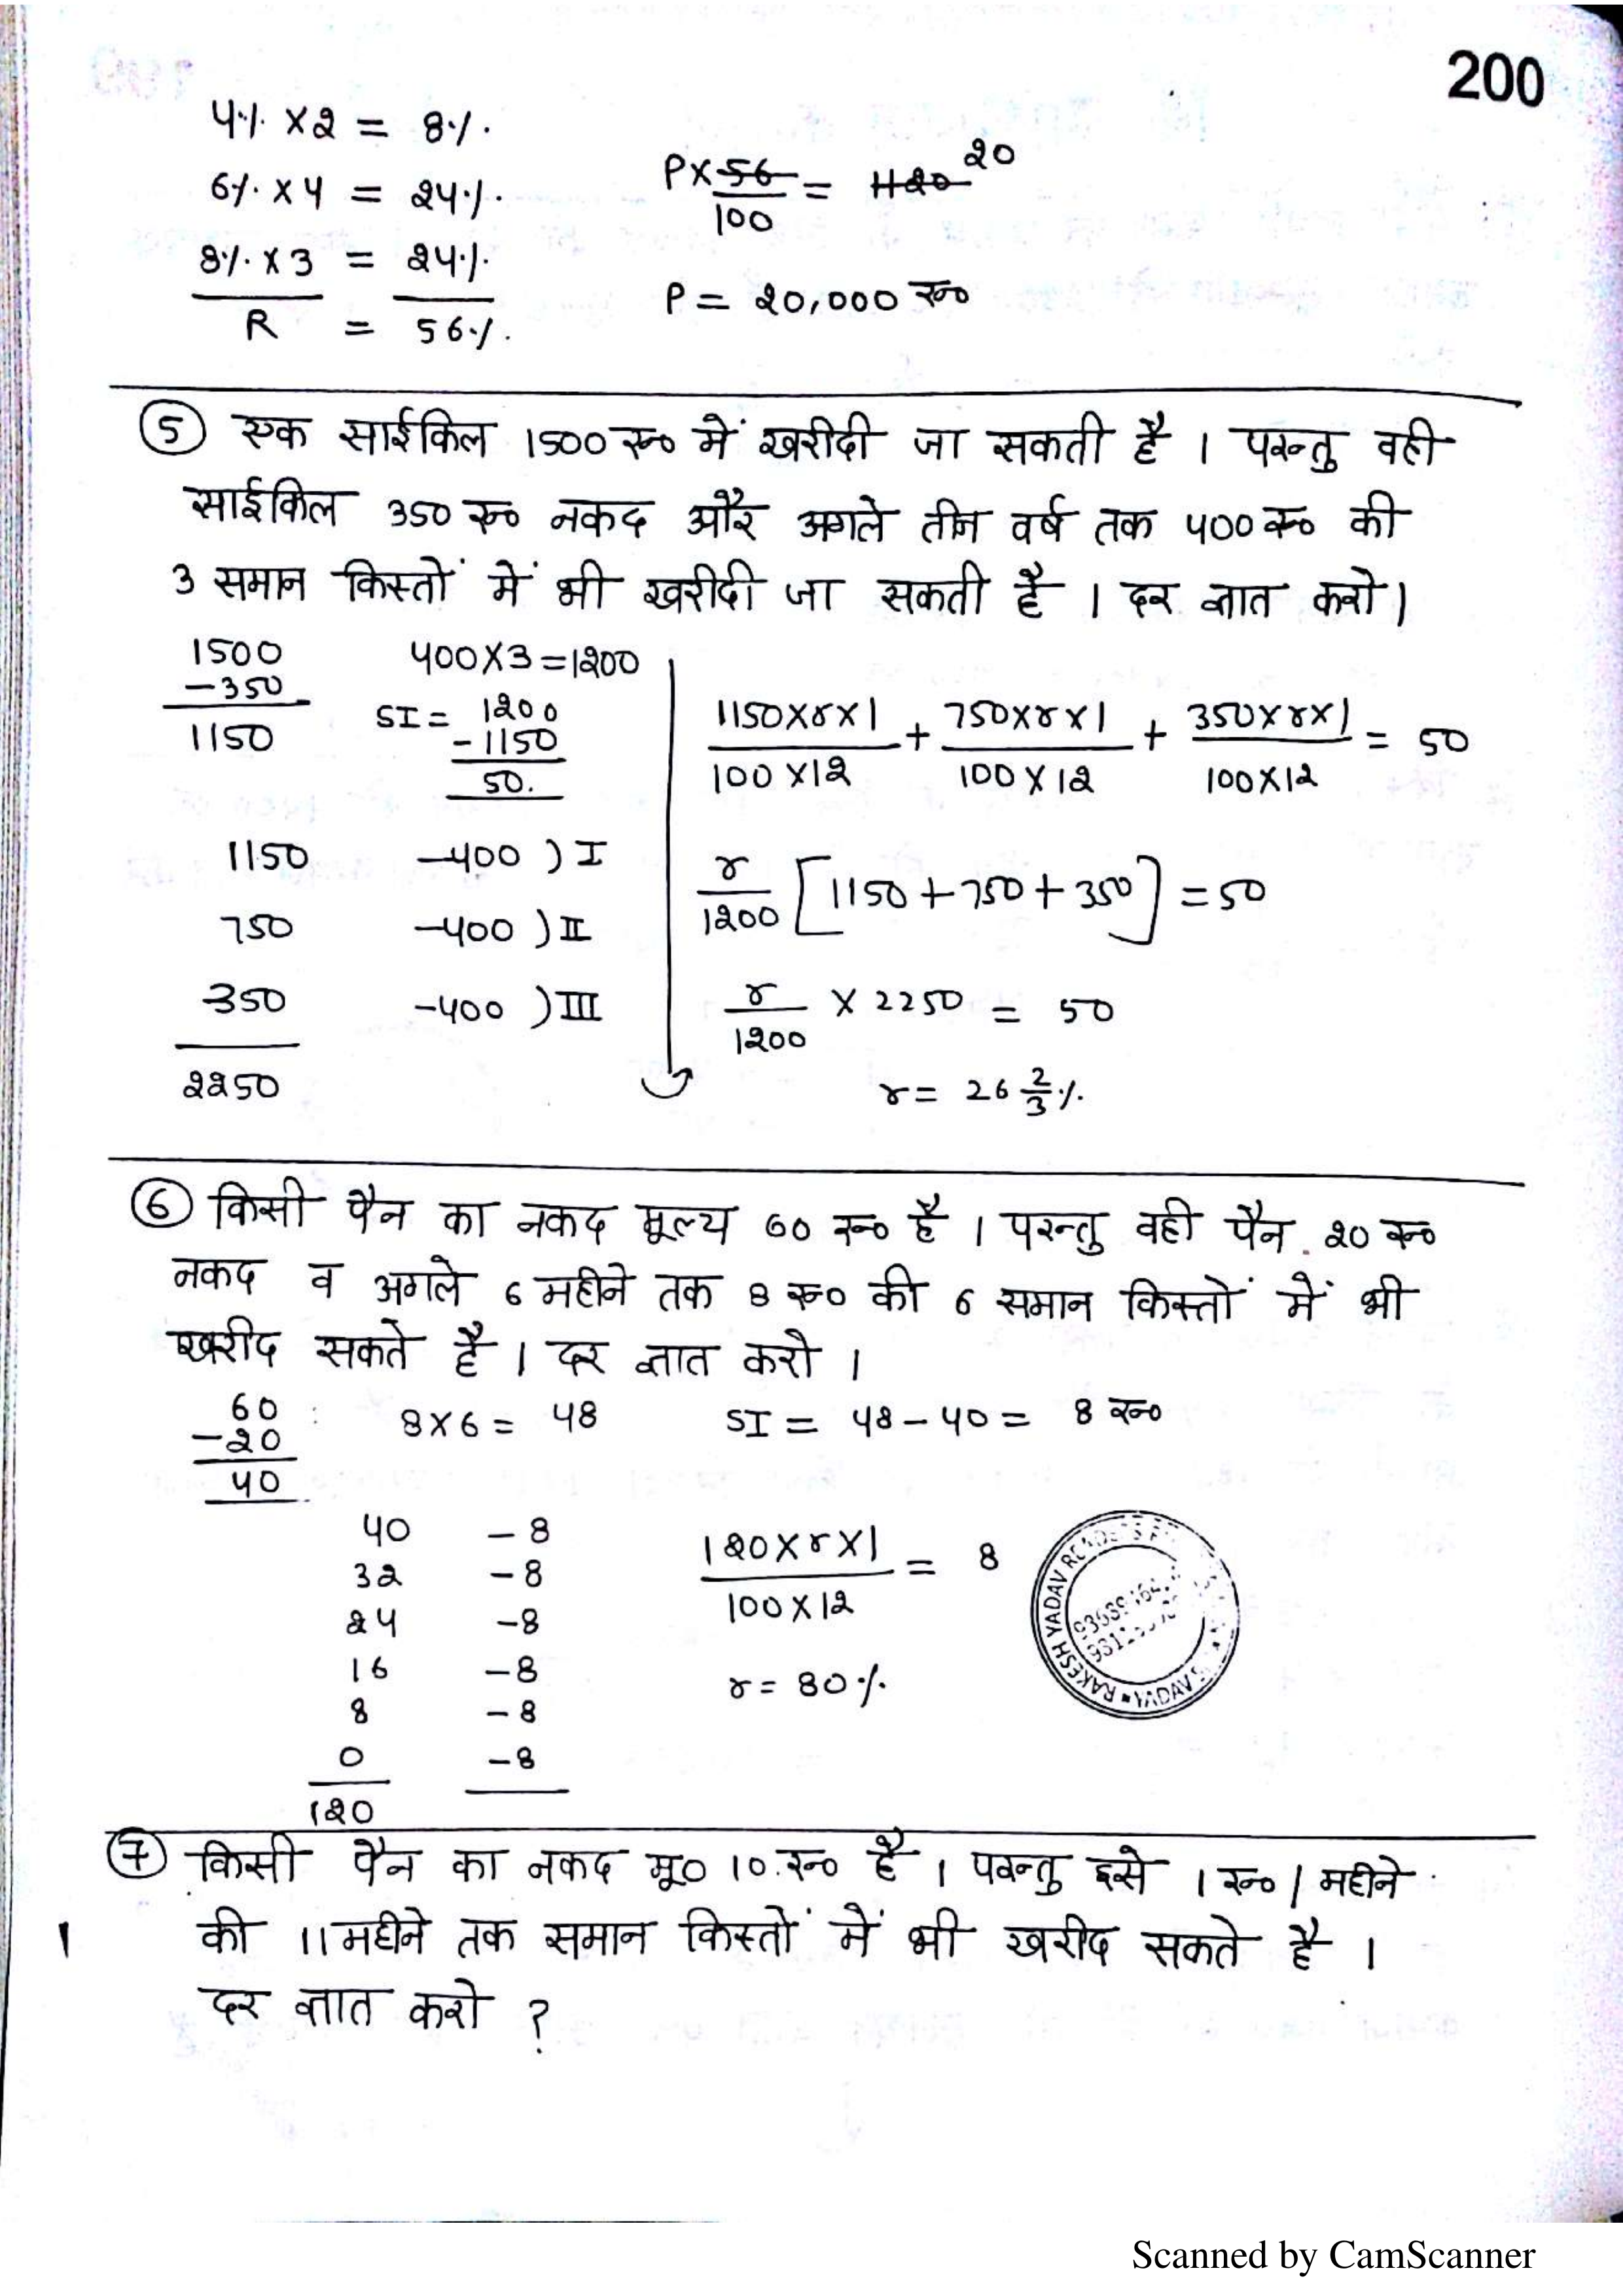 200
4% × 2 = 8%.
6% × 4 = 24%.
8% × 3 = 24%.
R = 56%.
P × 56/100 = 1120 20
P = 20,000 रू०
5 एक साईकिल 1500 रू० में खरीदी जा सकती है । परन्तु वही
साईकिल 350 रू० नकद और अगले तीन वर्ष तक 400 रू० की
3 समान किस्तों में भी खरीदी जा सकती है । दर ज्ञात करो।
1500
-350
1150
400×3=1200
SI = 1200
-1150
50.
1150 -400 ) I
750 -400 ) II
350 -400 ) III
2250
1150×r×1/100×12 + 750×r×1/100×12 + 350×r×1/100×12 = 50
r/1200 [1150+750+350] = 50
r/1200 × 2250 = 50
r = 26 2/3 %.
6 किसी पैन का नकद मूल्य 60 रू० है । परन्तु वही पैन 20 रू०
नकद व अगले 6 महीने तक 8 रू० की 6 समान किस्तों में भी
खरीद सकते है । दर ज्ञात करो ।
60
-20
40
8×6 = 48
SI = 48-40 = 8 रू०
40 -8
32 -8
24 -8
16 -8
8 -8
0 -8
120
120×r×1/100×12 = 8
r = 80%.
RAKESH YADAV READERS
7 किसी पैन का नकद मू० 10 रू० है । परन्तु इसे 1 रू० / महीने
की 11 महीने तक समान किस्तों में भी खरीद सकते है ।
दर ज्ञात करो ?
Scanned by CamScanner